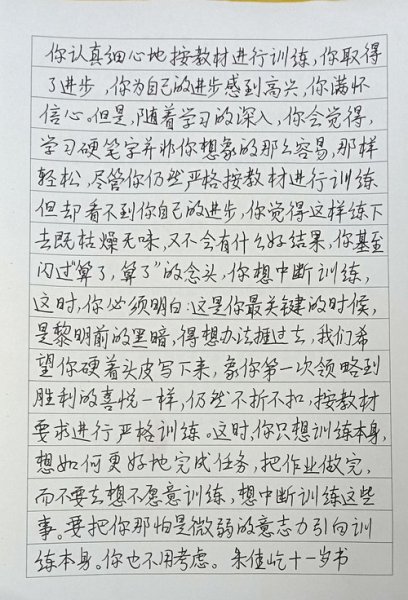 你认真细心地按教材进行训练，你取得
了进步，你为自己的进步感到高兴，你满怀
信心。但是，随着学习的深入，你会觉得，
学习硬笔字并非你想象的那么容易，那样
轻松，尽管你仍然严格按教材进行训练
但却看不到你自己的进步，你觉得这样练下
去既枯燥无味，又不会有什么好结果，你甚至
闪过“算了，算了”的念头，你想中断训练，
这时，你必须明白：这是你最关键的时候，
是黎明前的黑暗，得想办法捱过去，我们希
望你硬着头皮写下来，象你第一次领略到
胜利的喜悦一样，仍然不折不扣，按教材
要求进行严格训练。这时，你只想训练本身，
想如何更好地完成任务，把作业做完，
而不要去想不愿意训练，想中断训练这些
事。要把你那怕是微弱的意志力引向训
练本身。你也不用考虑。 朱佳屹十一岁书